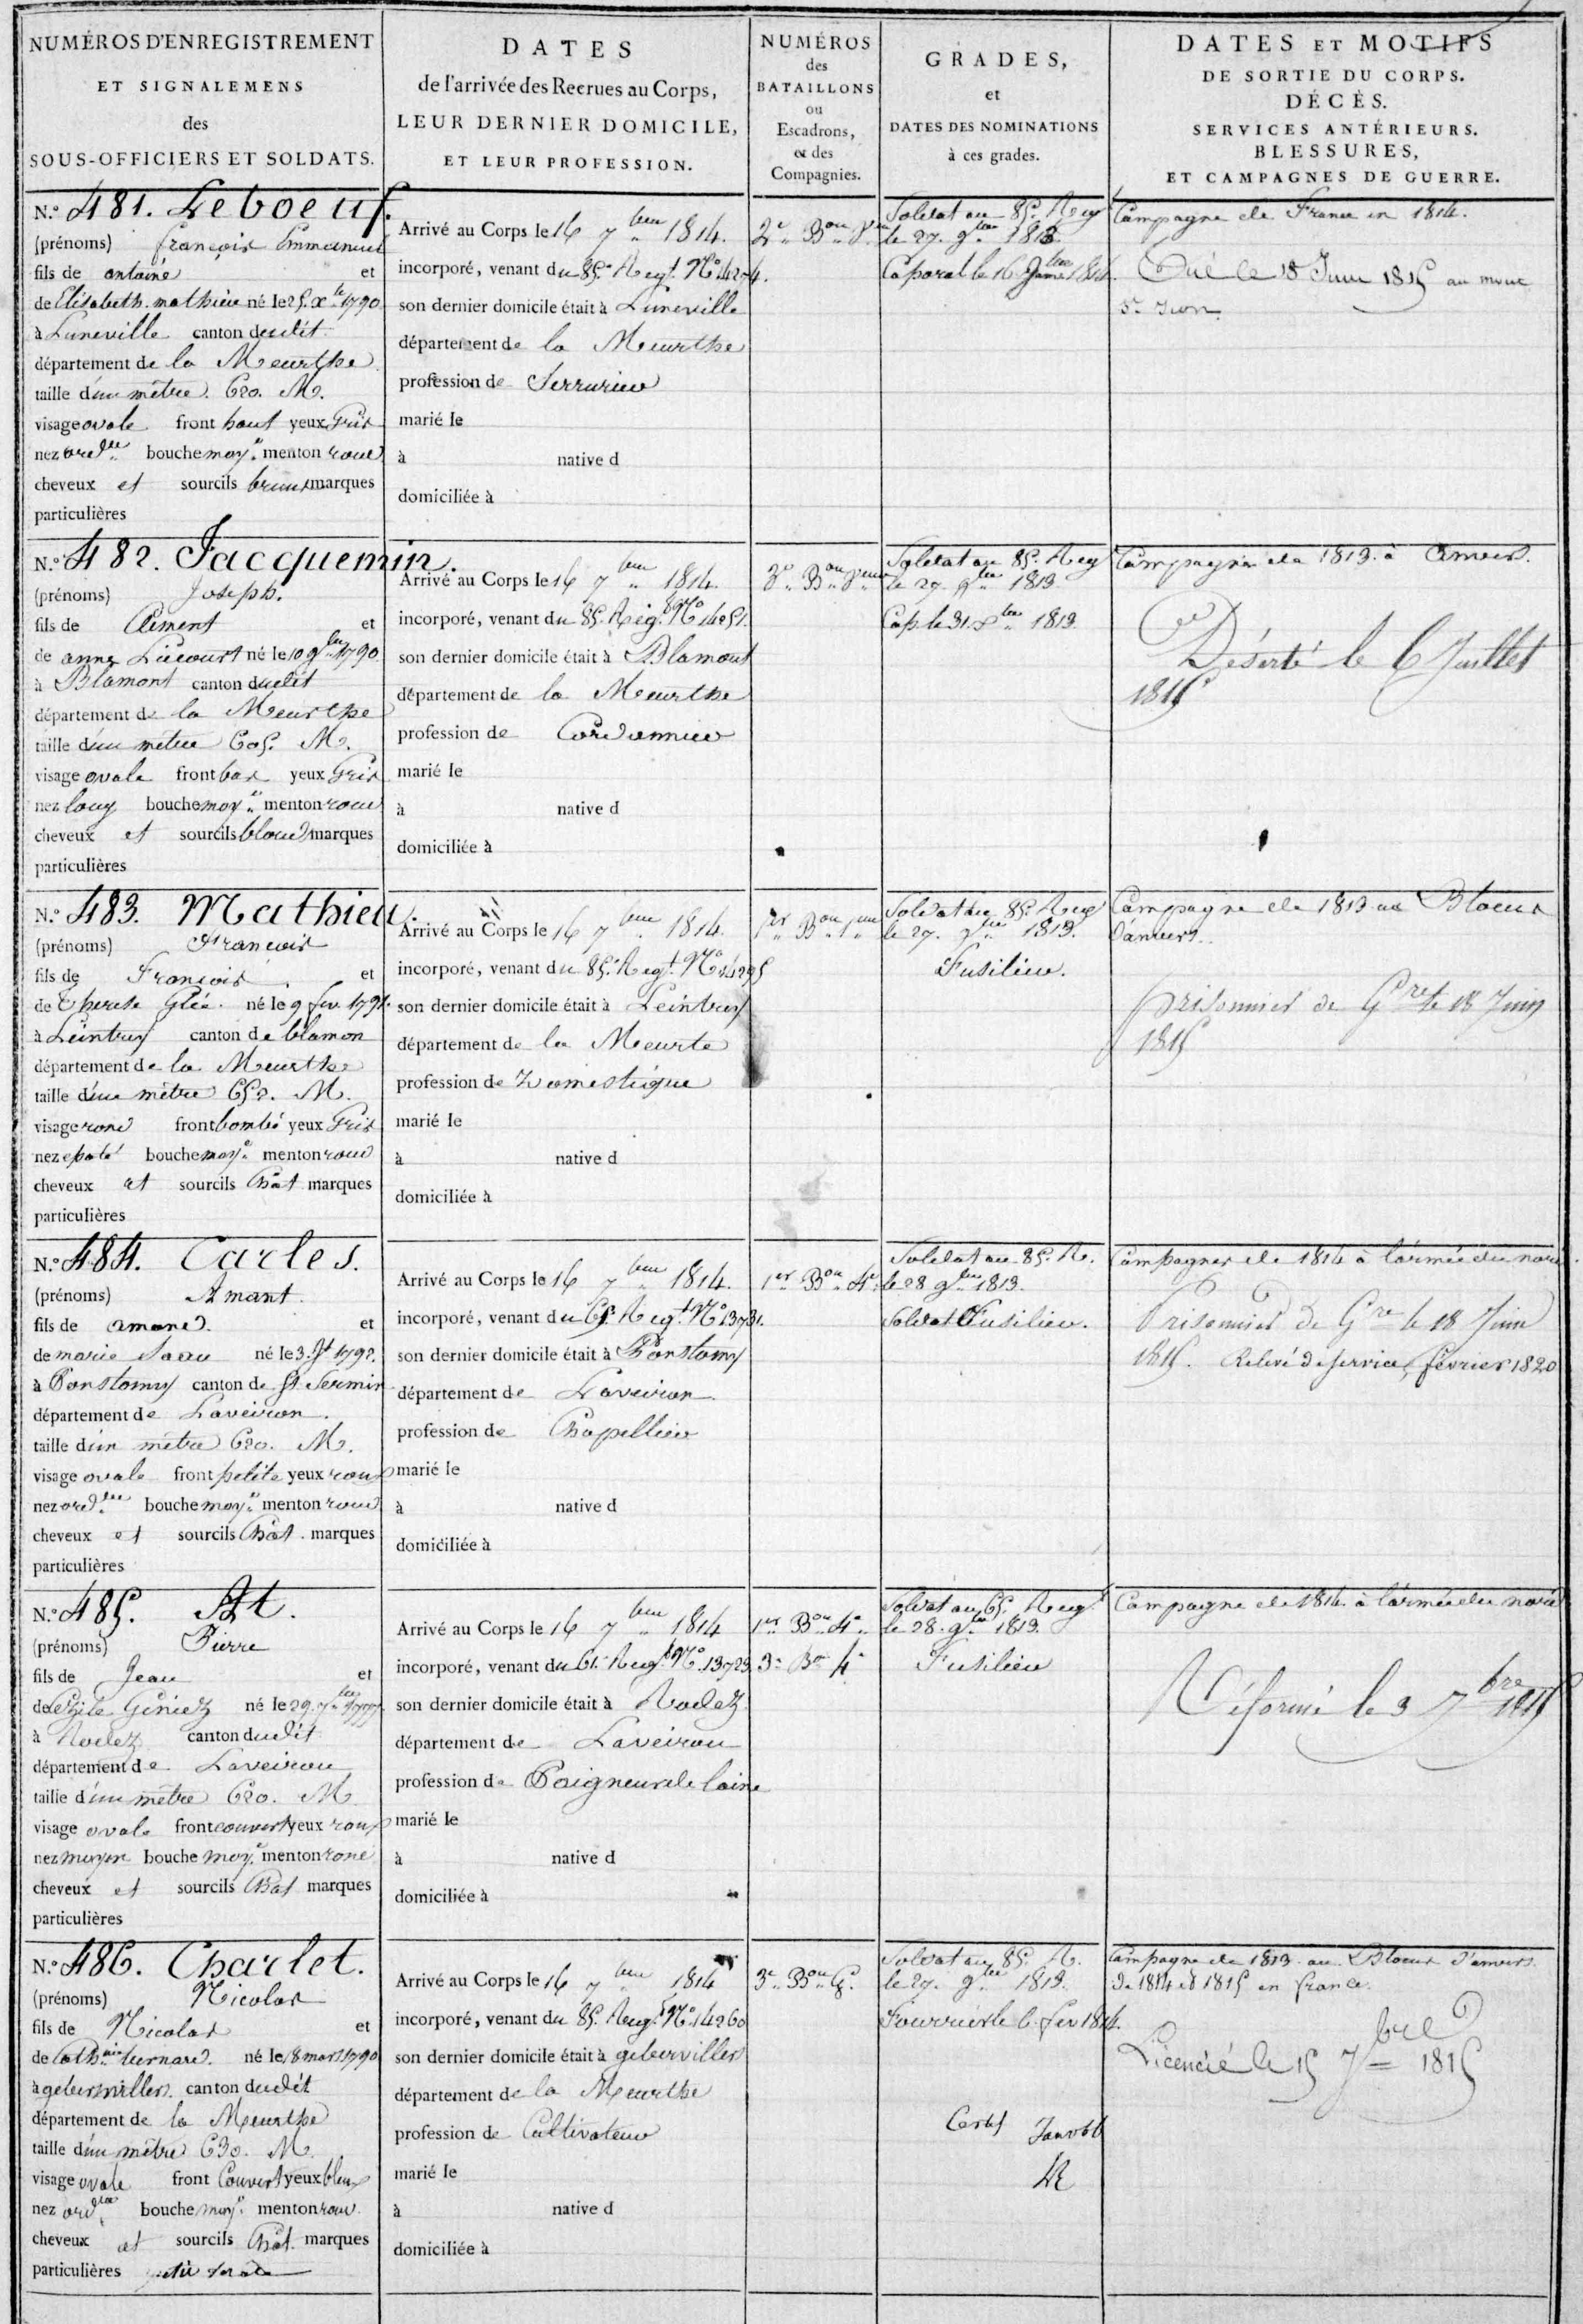 NUMÉROS D'ENREGISTREMENT
ET SIGNALEMENS
des
SOUS-OFFICIERS ET SOLDATS.
DATES
de l'arrivée des Recrues au Corps,
LEUR DERNIER DOMICILE,
ET LEUR PROFESSION.
NUMÉROS
des
BATAILLONS
ou
Escadrons,
et des
Compagnies.
GRADES,
et
DATES DES NOMINATIONS
à ces grades.
DATES ET MOTIFS
DE SORTIE DU CORPS.
DÉCÈS.
SERVICES ANTÉRIEURS.
BLESSURES,
ET CAMPAGNES DE GUERRE.
N.° 481. Leboeuf.
(prénoms) françois Emmanuel
fils de antoine et
de Elisabeth mathieu né le 25 Xbre 1790
à Luneville canton dudit
département de la Meurthe
taille d'un mètre 620. M.
visage ovale front haut yeux Gris
nez ordre bouche moye menton rond
cheveux et sourcils bruns marques
particulières
Arrivé au Corps le 16 7bre 1814.
incorporé, venant du 85e Regt. No 14204.
son dernier domicile était à Luneville
département de la Meurthe
profession de Serrurier
marié le
à native d
domiciliée à
2e Bon
Soldat au 85e Reg
le 27. 9bre 1813
Caporal le 16
Campagne de France en 1814.
Tué le 18 Juin 1815 au mont
St Jean.
N.° 482. Jacquemin.
(prénoms) Joseph.
fils de Clément et
de anne né le 10 9bre 1790
à Blamont canton dudit
département de la Meurthe
taille d'un mètre 605. M.
visage ovale front bas yeux Gris
nez long bouche moye menton rond
cheveux et sourcils blonds marques
particulières
Arrivé au Corps le 16 7bre 1814.
incorporé, venant du 85e Reg. No 14251.
son dernier domicile était à Blamont
département de la Meurthe
profession de Cordonnier
marié le
à native d
domiciliée à
Soldat au 85e Reg
le 27. 9bre 1813
Cap. le 31. 1813.
Campagne de 1813 à Anvers.
Déserté le 6 Juillet
1815
N.° 483. Mathieu.
(prénoms) Francois
fils de François et
de Therese né le 9 fev. 1791.
à Leintrey canton de blamon
département de la Meurthe
taille d'un mètre 652. M.
visage rond front bombé yeux Gris
nez epaté bouche moye menton rond
cheveux et sourcils Chât marques
particulières
Arrivé au Corps le 16 7bre 1814.
incorporé, venant du 85e Regt. No 14295
son dernier domicile était à Leintrey
département de la Meurte
profession de Domestique
marié le
à native d
domiciliée à
1er Bon 1ere
Soldat au 85e Reg
le 27. 9bre 1813.
Fusilier.
Campagne de 1813 au Blocus
d'anvers.
Prisonnier de Gre le 18 Juin
1815
N.° 484. Carles.
(prénoms) Amant.
fils de amand. et
de marie né le 3. 1792.
à Ponstomy canton de St Sernin
département de Laveiron.
taille d'un mètre 620. M.
visage ovale front petite yeux roux
nez ordre bouche moye menton rond
cheveux et sourcils Chât. marques
particulières
Arrivé au Corps le 16 7bre 1814.
incorporé, venant du 65 Regt. No 13731.
son dernier domicile était à Ponstomy
département de Laveiron
profession de Chapellier
marié le
à native d
domiciliée à
1er Bon 4e
Soldat au 85e R.
le 28 9bre 1813.
Soldat Fusilier.
Campagnes de 1814 à l'armée du nord.
Prisonnier de Gre le 18 Juin
1815. Relevé de service, février 1820
N.° 485. At.
(prénoms) Pierre
fils de Jean et
de Cézile Giniez né le 29.
à Rodez canton dudit
département de Laveirou
taille d'un mètre 620. M
visage ovale front couvert yeux roux
nez moyen bouche moye menton rond
cheveux et sourcils Chat marques
particulières
Arrivé au Corps le 16 7bre 1814
incorporé, venant du 65 Regt. No 13723.
son dernier domicile était à Rodez.
département de Laveirou
profession de Paigneur de laine
marié le
à native d
domiciliée à
1er Bon 4e
3e Bon 4e
Soldat au 65. Regt
le 28. 9bre 1813.
Fusilier
Campagne de 1814 à l'armée du nord
Réformé le 3 7bre 1815
N.° 486. Charlet.
(prénoms) Nicolas
fils de Nicolas et
de Cathne bernard. né le 8 mars 1790
à geberviller. canton dudit
département de la Meurthe
taille d'un mètre 630. M.
visage ovale front Couvert yeux bleux
nez ordre bouche moye menton rond
cheveux et sourcils Chât. marques
particulières
Arrivé au Corps le 16 7bre 1814
incorporé, venant du 85e Regt. No 14260
son dernier domicile était à geberviller
département de la Meurthe
profession de Cultivateur
marié le
à native d
domiciliée à
3e Bon
Soldat au 85e R.
le 27. 9bre 1813.
Fourrier le 6. fev 1814.
Campagne de 1813 au Blocus d'anvers.
De 1814 et 1815 en france.
Licencié le 15 7bre 1815